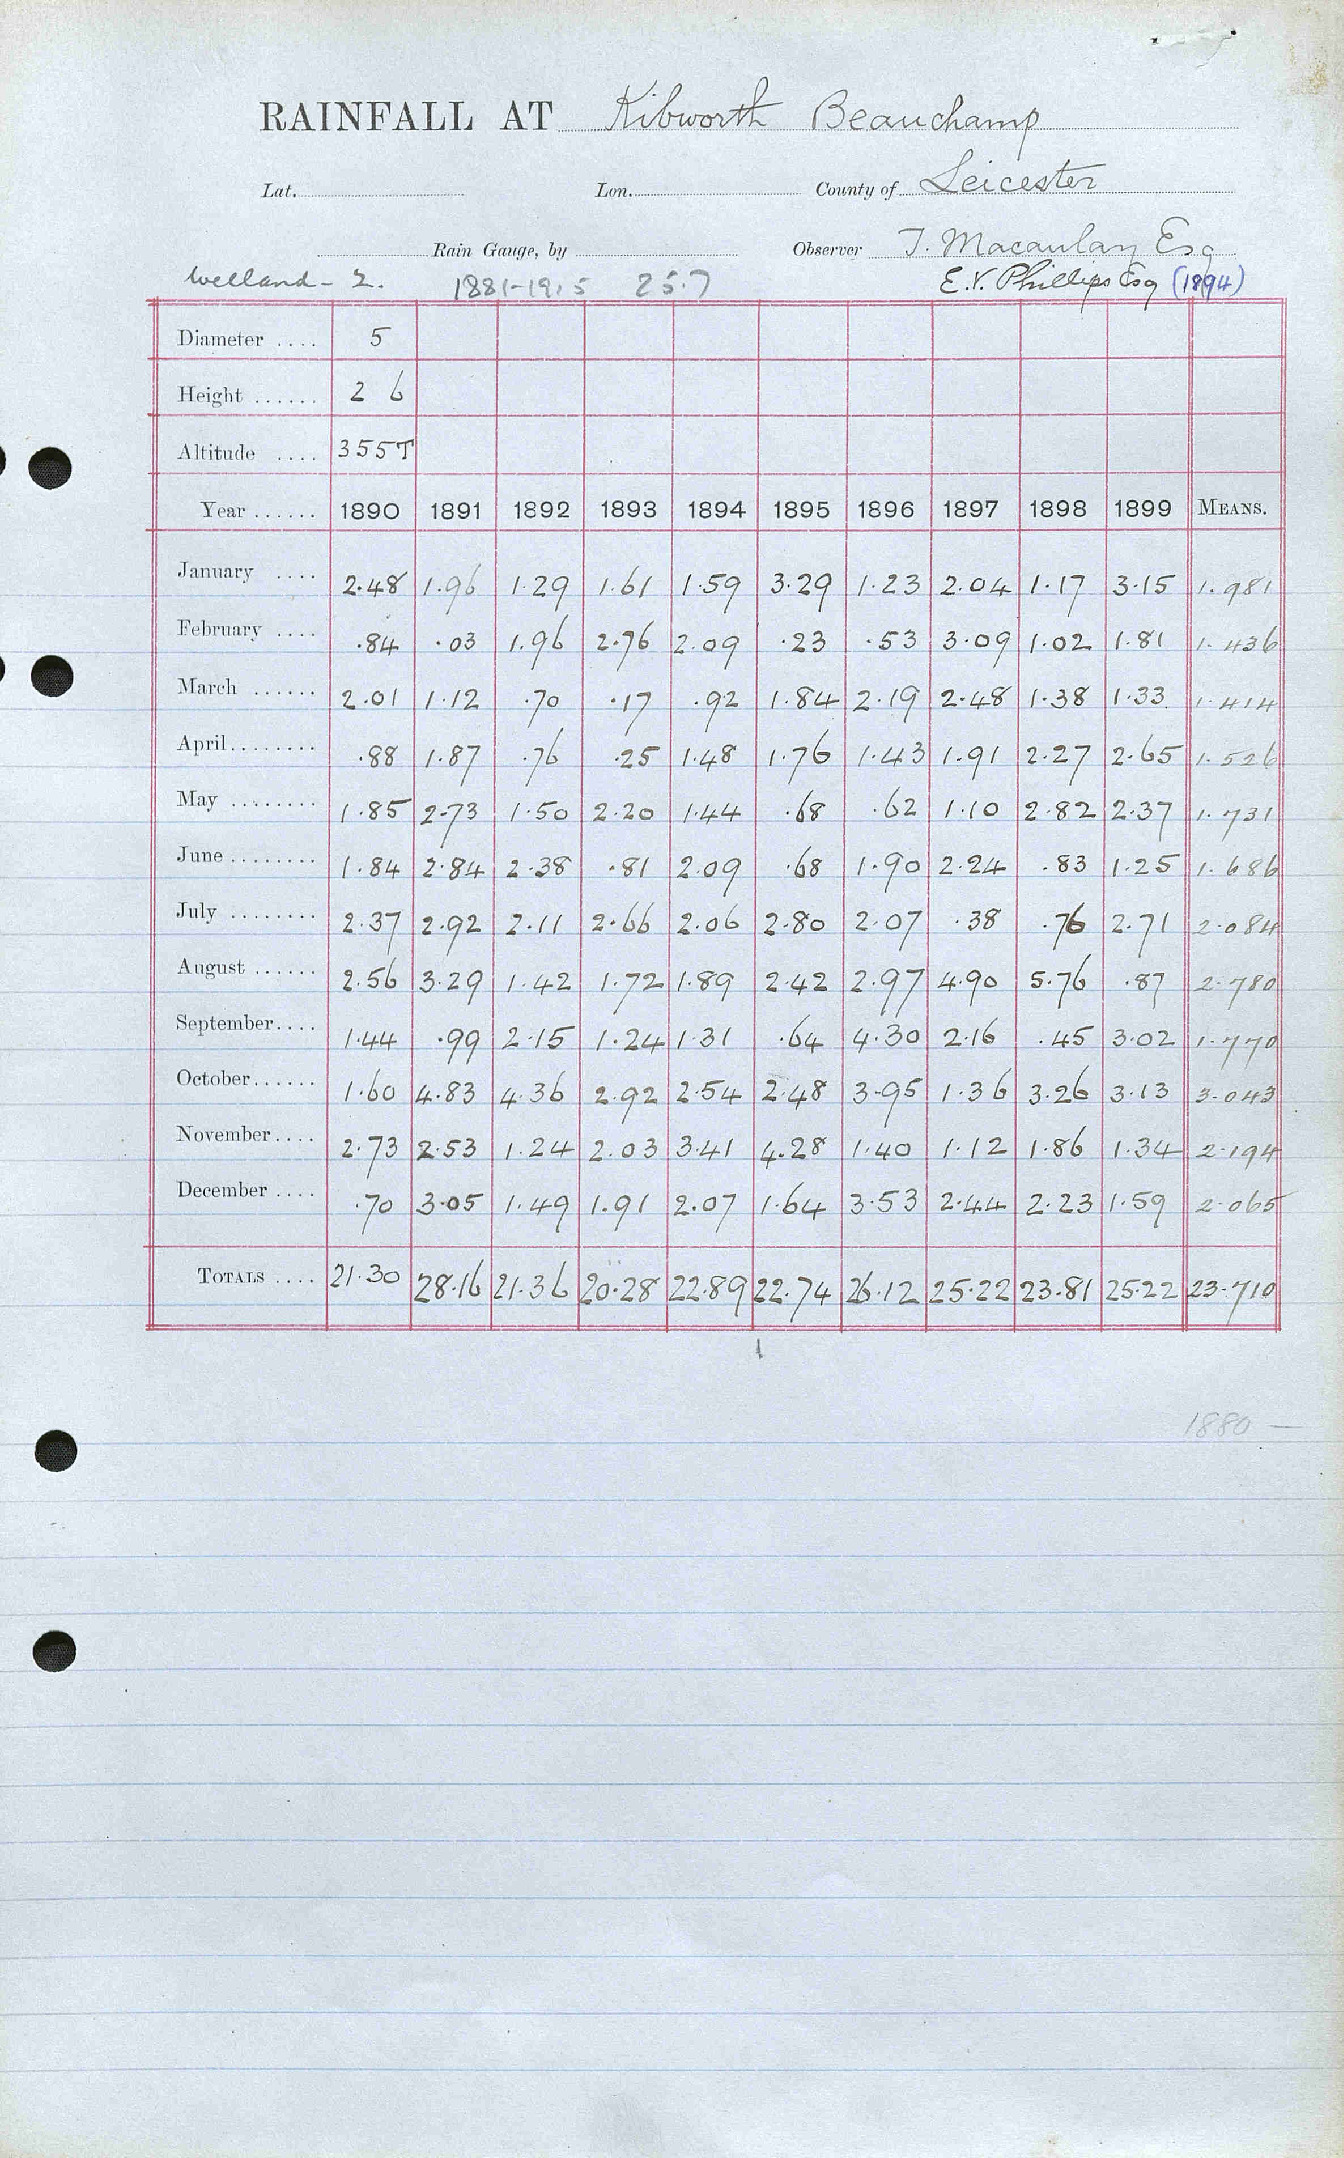 RAINFALL AT Kibworth Beauchamp
Lat. Lon. County of Leicester
Rain Gauge, by Observer T. Macaulay Esq
Welland - 2. 1881-1915 25.7 E.V. Phillips Esq (1894)
Diameter .... 5
Height ...... 2 6
Altitude .... 355T
Year ...... 1890 1891 1892 1893 1894 1895 1896 1897 1898 1899 MEANS.
January .... 2.48 1.96 1.29 1.61 1.59 3.29 1.23 2.04 1.17 3.15 1.981
February .... .84 .03 1.96 2.76 2.09 .23 .53 3.09 1.02 1.81 1.436
March ...... 2.01 1.12 .70 .17 .92 1.84 2.19 2.48 1.38 1.33 1.414
April........ .88 1.87 .76 .25 1.48 1.76 1.43 1.91 2.27 2.65 1.526
May ........ 1.85 2.73 1.50 2.20 1.44 .68 .62 1.10 2.82 2.37 1.731
June ........ 1.84 2.84 2.38 .81 2.09 .68 1.90 2.24 .83 1.25 1.686
July ........ 2.37 2.92 2.11 2.66 2.06 2.80 2.07 .38 .76 2.71 2.084
August ...... 2.56 3.29 1.42 1.72 1.89 2.42 2.97 4.90 5.76 .87 2.780
September.... 1.44 .99 2.15 1.24 1.31 .64 4.30 2.16 .45 3.02 1.770
October...... 1.60 4.83 4.36 2.92 2.54 2.48 3.95 1.36 3.26 3.13 3.043
November.... 2.73 2.53 1.24 2.03 3.41 4.28 1.40 1.12 1.86 1.34 2.194
December .... .70 3.05 1.49 1.91 2.07 1.64 3.53 2.44 2.23 1.59 2.065
TOTALS .... 21.30 28.16 21.36 20.28 22.89 22.74 26.12 25.22 23.81 25.22 23.710
1
1880 —